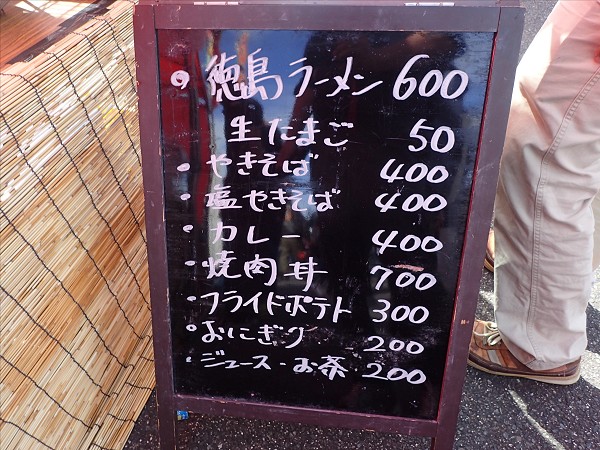 ・徳島ラーメン 600
生たまご 50
・やきそば 400
・塩やきそば 400
・カレー 400
・焼肉丼 700
・フライドポテト 300
・おにぎり 200
・ジュース・お茶 200